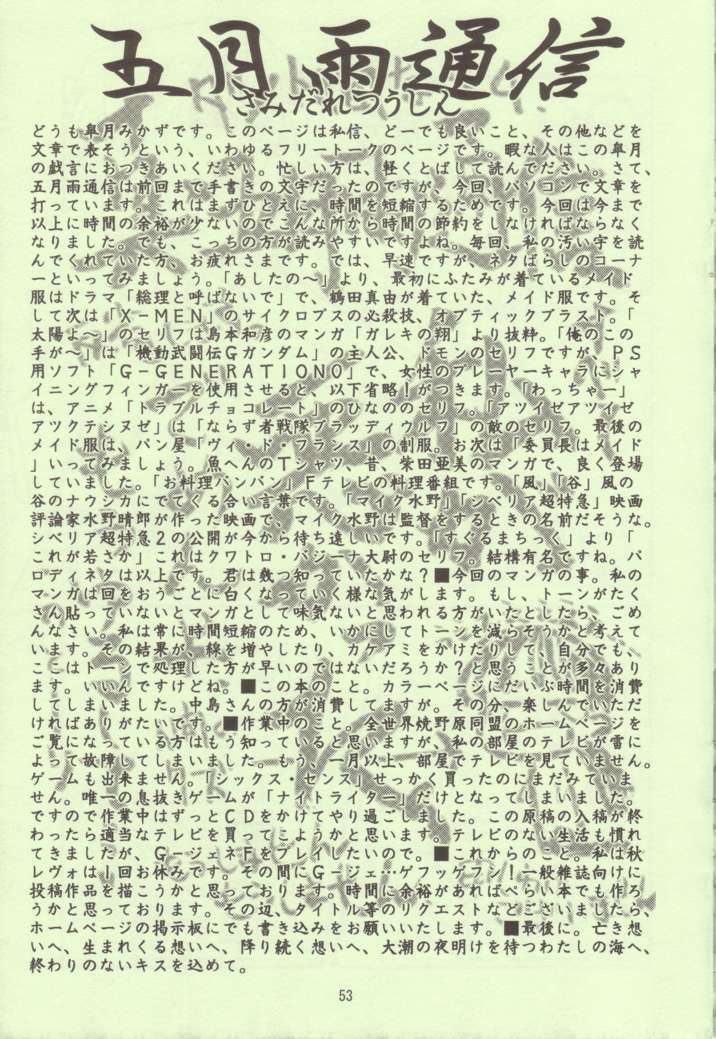 五月雨通信
さみだれつうしん
どうも皐月みかずです。このページは私信、どーでも良いこと、その他などを
文章で表そうという、いわゆるフリートークのページです。暇な人はこの皐月
の戯言におつきあいください。忙しい方は、軽くとばして読んでださい。さて、
五月雨通信は前回まで手書きの文字だったのですが、今回、パソコンで文章を
打っています。これはまずひとえに、時間を短縮するためです。今回は今まで
以上に時間の余裕が少ないのでこんな所から時間の節約をしなければならなく
なりました。でも、こっちの方が読みやすいですよね。毎回、私の汚い字を読
んでくれていた方、お疲れさまです。では、早速ですが、ネタばらしのコーナ
ーといってみましょう。「あしたのへ」より、最初にふたみが着ているメイド
服はドラマ「総理と呼ばないで」で、鶴田真由が着ていた、メイド服です。そ
して次は「X-MEN」のサイクロプスの必殺技、オプティックブラスト。「
太陽よ～」のセリフは島本和彦のマンガ「ガレキの翔」より抜粋。「俺のこの
手が～」は「機動武闘伝Gガンダム」の主人公、ドモンのセリフですが、PS
用ソフト「G-GENERATION0」で、女性のプレーヤーキャラにシャ
イニングフィンガーを使用させると、以下省略！がつきます。「わっちゃー」
は、アニメ「トラブルチョコレート」のひなののセリフ。「アツイゼアツイゼ
アツクテシヌゼ」は「ならず者戦隊ブラッディウルフ」の敵のセリフ。最後の
メイド服は、パン屋「ヴィ・ド・フランス」の制服。お次は「委員長はメイド
」いってみましょう。魚へんのTシャツ、昔、柴田亜美のマンガで、良く登場
していました。「お料理バンバン」Fテレビの料理番組です。「風」「谷」風の
谷のナウシカにでてくる合い言葉です。「マイク水野」「シベリア超特急」映画
評論家水野晴郎が作った映画で、マイク水野は監督をするときの名前だそうな。
シベリア超特急2の公開が今から待ち遠しいです。「すぐるまちっく」より「
これが若さか」これはクワトロ・バジーナ大尉のセリフ。結構有名ですね。パ
ロディネタは以上です。君は幾つ知っていたかな？■今回のマンガの事。私の
マンガは回をおうごとに白くなっていく様な気がします。もし、トーンがたく
さん貼っていないとマンガとして味気ないと思われる方がいたとしたら、ごめ
んなさい。私は常に時間短縮のため、いかにしてトーンを減らそうかと考えて
います。その結果が、線を増やしたり、カケアミをかけたりして、自分でも、
ここはトーンで処理した方が早いのではないだろうか？と思うことが多々あり
ます。いいんですけどね。■この本のこと。カラーページにだいぶ時間を消費
してしまいました。中島さんの方が消費してますが。その分、楽しんでいただ
ければありがたいです。■作業中のこと。全世界焼野原同盟のホームページを
ご覧になっている方はもう知っていると思いますが、私の部屋のテレビが雷に
よって故障してしまいました。もう、一月以上、部屋でテレビを見ていません。
ゲームも出来ません。「シックス・センス」せっかく買ったのにまだみていま
せん。唯一の息抜きゲームが「ナイトライター」だけとなってしまいました。
ですので作業中はずっとCDをかけてやり過ごしました。この原稿の入稿が終
わったら適当なテレビを買ってこようかと思います。テレビのない生活も慣れ
てきましたが、G-ジェネFをプレイしたいので。■これからのこと。私は秋
レヴォは1回お休みです。その間にG-ジェ…ゲフッゲフン！一般雑誌向けに
投稿作品を描こうかと思っております。時間に余裕があればぺらい本でも作ろ
うかと思っております。その辺、タイトル等のリクエストなどございましたら、
ホームページの掲示板にでも書き込みをお願いいたします。■最後に。亡き想
いへ、生まれくる想いへ、降り続く想いへ、大潮の夜明けを待つわたしの海へ、
終わりのないキスを込めて。
53